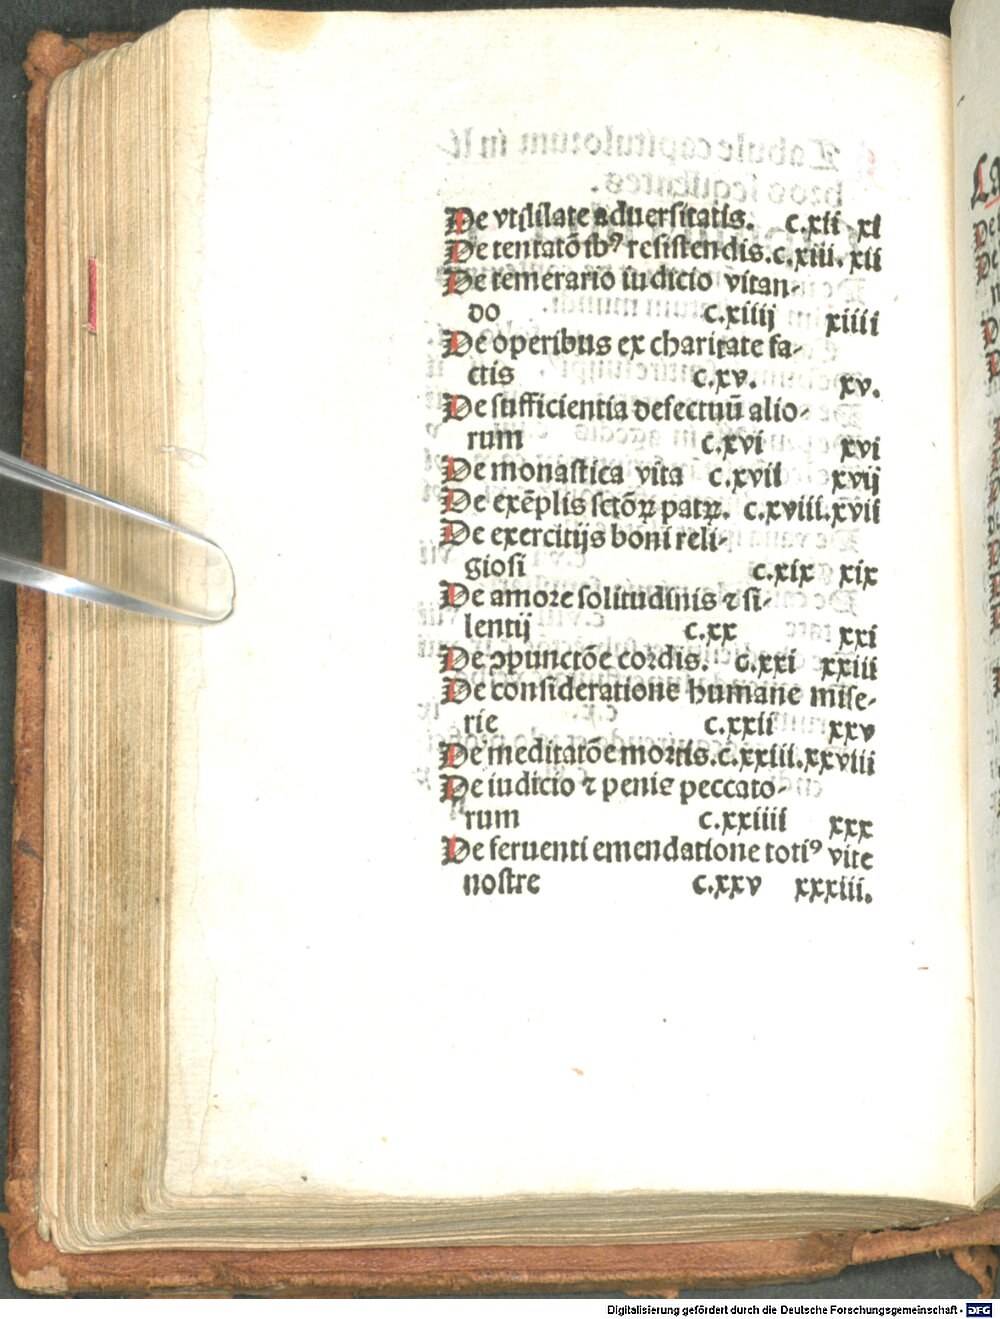 De vtilitate aduersitatis. c.xii xi
De tentatōībꝰ resistendis.c.xiii. xii
De temerario iudicio vitan-
do c.xiiij xiiii
De operibus ex charitate fa-
ctis c.xv. xv.
De sufficientia defectuū alio-
rum c.xvi xvi
De monastica vita c.xvii xvij
De exēplis sctōꝝ patꝝ. c.xviii.xvii
De exercitijs boni reli-
giosi c.xix xix
De amore solitudinis ⁊ si-
lentij c.xx xxi
De ↄpunctōe cordis. c.xxi xxiii
De consideratione humane mise-
rie c.xxii xxv
De meditatōe mortis.c.xxiii.xxviii
De iudicio ⁊ penis peccato-
rum c.xxiiii xxx
De feruenti emendatione totiꝰ vite
nostre c.xxv xxxiii.
Digitalisierung gefördert durch die Deutsche Forschungsgemeinschaft - DFG